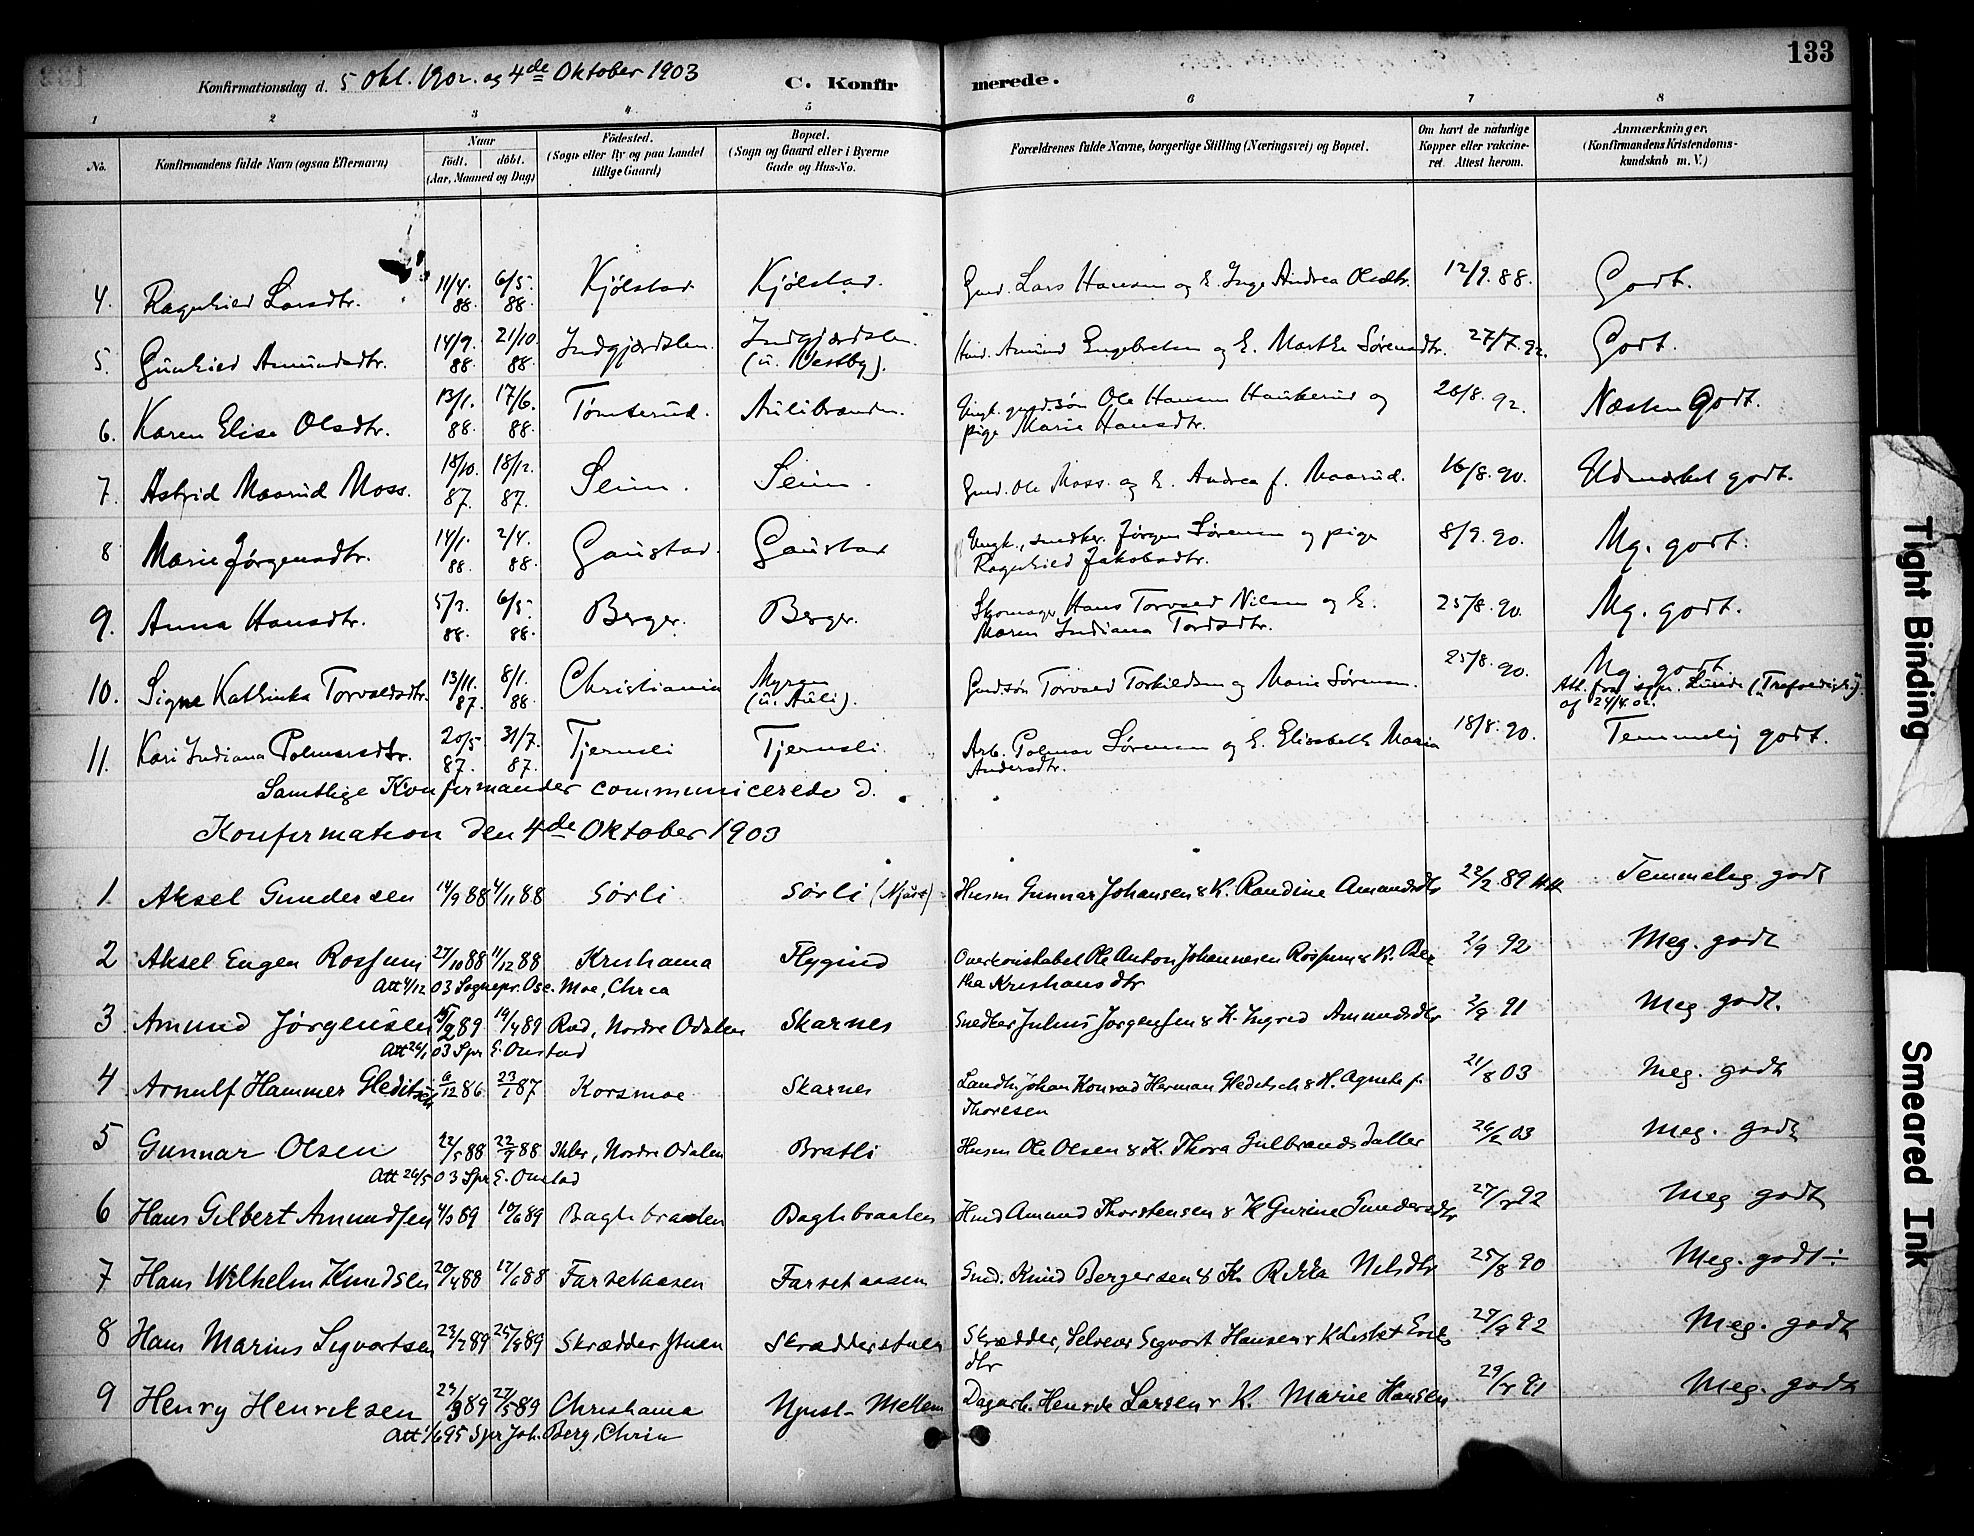 133
Konfirmationsdag d. 5 Okt. 1902. og 4de Oktober 1903 C. Konfirmerede.
1 2 3 4 5 6 7 8
No. Konfirmandens fulde Navn (ogsaa Efternavn) Naar födt. döbt. (Aar, Maaned og Dag) Födested. (Sogn eller By og paa Landet tillige Gaard) Bopæl. (Sogn og Gaard eller i Byerne Gade og Hus-No. Forældrenes fulde Navne, borgerlige Stilling (Næringsvei) og Bopæl. Om havt de naturlige Kopper eller vakcineret. Attest herom. Anmærkninger. (Konfirmandens Kristendomskundskab m. V.)
4. Ragnhild Larsdtr. 11/4. 88. 6/5. 88. Kjölstad Kjölstad. Gmd. Lars Hansen og E. Inge Andrea Olsdtr. 12/9. 88. Godt.
5. Gunhild Amundsdtr. 14/9. 88. 21/10. 88. Indgjærdslen. Indgjærdslen. (u. Vestby). Hmd. Amund Engebretsen og E. Marthe Sörensdtr. 27/7. 92. Godt.
6. Karen Elise Olsdtr. 13/1. 88. 17/6. 88. Tomterud. Aulibraaten. Ungk. gmd.sön Ole Hansen Haukerud og
pige Marie Hansdtr. 26/8. 92. Næsten Godt.
7. Astrid Maarud Moss. 18/10. 87. 18/12. 87. Seim. Seim. Gmd. Ole Moss. og E. Andrea f. Maarud. 16/8. 90. Udmærket godt.
8 Marie Jørgensdtr. 14/1. 88. 2/4. 88. Gaustad. Gaustad Ungk., snedker Jørgen Sørensen og pige
Ragnhild Jakobsdtr. 8/9. 90. Mg. godt.
9. Anna Hansdtr. 5/3. 88. 6/5. 88. Berger. Berger. Skomager Hans Torvald Nilsen og E.
Maren Indiana Tordsdtr. 25/8. 90. Mg. godt.
10. Signe Kathinka Torvaldsdtr. 13/11. 87. 8/1. 88. Christiania Myren (u. Auli). Gmdsön Torvald Torkildsen og Marie Sörensen. 25/8. 90. Mg. godt
Att. fra sgpr. Lunde (Trefoldigh.) af 24/4. 02.
11. Kari Indiana Palmersdtr. 20/5 87. 31/7. 87. Tjernsli Tjernsli. Arb. Palmer Sörensen og E. Elisabeth Maria
Andersdtr. 18/8. 90. Temmelig godt.
Samtlige Konfirmander communicerede d.
Konfirmation den 4de Oktober 1903
1 Aksel Gundersen 14/9 88 4/11 88 Sörli Sörli (Njust) Husm Gunnar Johansen & K. Randine Amundsdtr 22/2 89 Temmeleg godt
2 Aksel Eugen Rossum 27/10 88 11/12 88 Kristiania Flygind Overkonstabel Ole Anton Johannesen Rossum & K. Ber
tha Kristiansdtr 2/9 92 Meg. godt
Att 4/12 03 Sognepr. Ose. Moe, Chria
3 Amund Jørgensen 15/2 89 19/4 89 Rud, Nordre Odalen Skarnes Snedker Julius Jørgensen & K. Ingrid Amundsdtr 2/9 91 Meg. godt.
Att 26/1 03 Spr E. Onstad
4 Arnulf Hammer Gleditsch 6/12 86 23/1 87 Korsmoe Skarnes Landh. Johan Konrad Herman Gleditsch & K. Agnete f.
Thoresen 21/8 03 Meg. godt
5 Gunnar Olsen 12/5 88 22/7 88 Ihler, Nordre Odalen Bratli Husm Ole Olsen & K. Thora Gulbrandsdatter 26/6 03 Meg. godt
Att 26/5 03 Spr E. Onstad
6 Hans Gilbert Amundsen 4/3 89 10/6 89 Baglibraaten Baglibraaten Hmd Amund Thorstensen & K Gurine Gundersdtr 27/7 92 Meg godt
7 Hans Wilhelm Knudsen 20/4 88 17/6 88 Farsetaasen Farsetaasen Gmd. Knud Bergersen & K. Rikka Nilsdtr 25/8 90 Meg. godt ÷
8 Hans Marius Sigvartsen 23/7 89 25/8 89 Skrædderstuen Skrædderstuen Skrædder, Selveier Sigvart Hansen & K Lisbet Eriks
dtr 27/9 92 Meg. godt
9 Henry Henriksen 23/3 89 27/5 89 Christiania Njust-Mellem Dagarb. Henrik Larsen & K. Marie Hansen 29/8 91 Meg. godt
Att 1/6 95 Spr Joh. Berg, Chria
Tight Binding
Smeared Ink